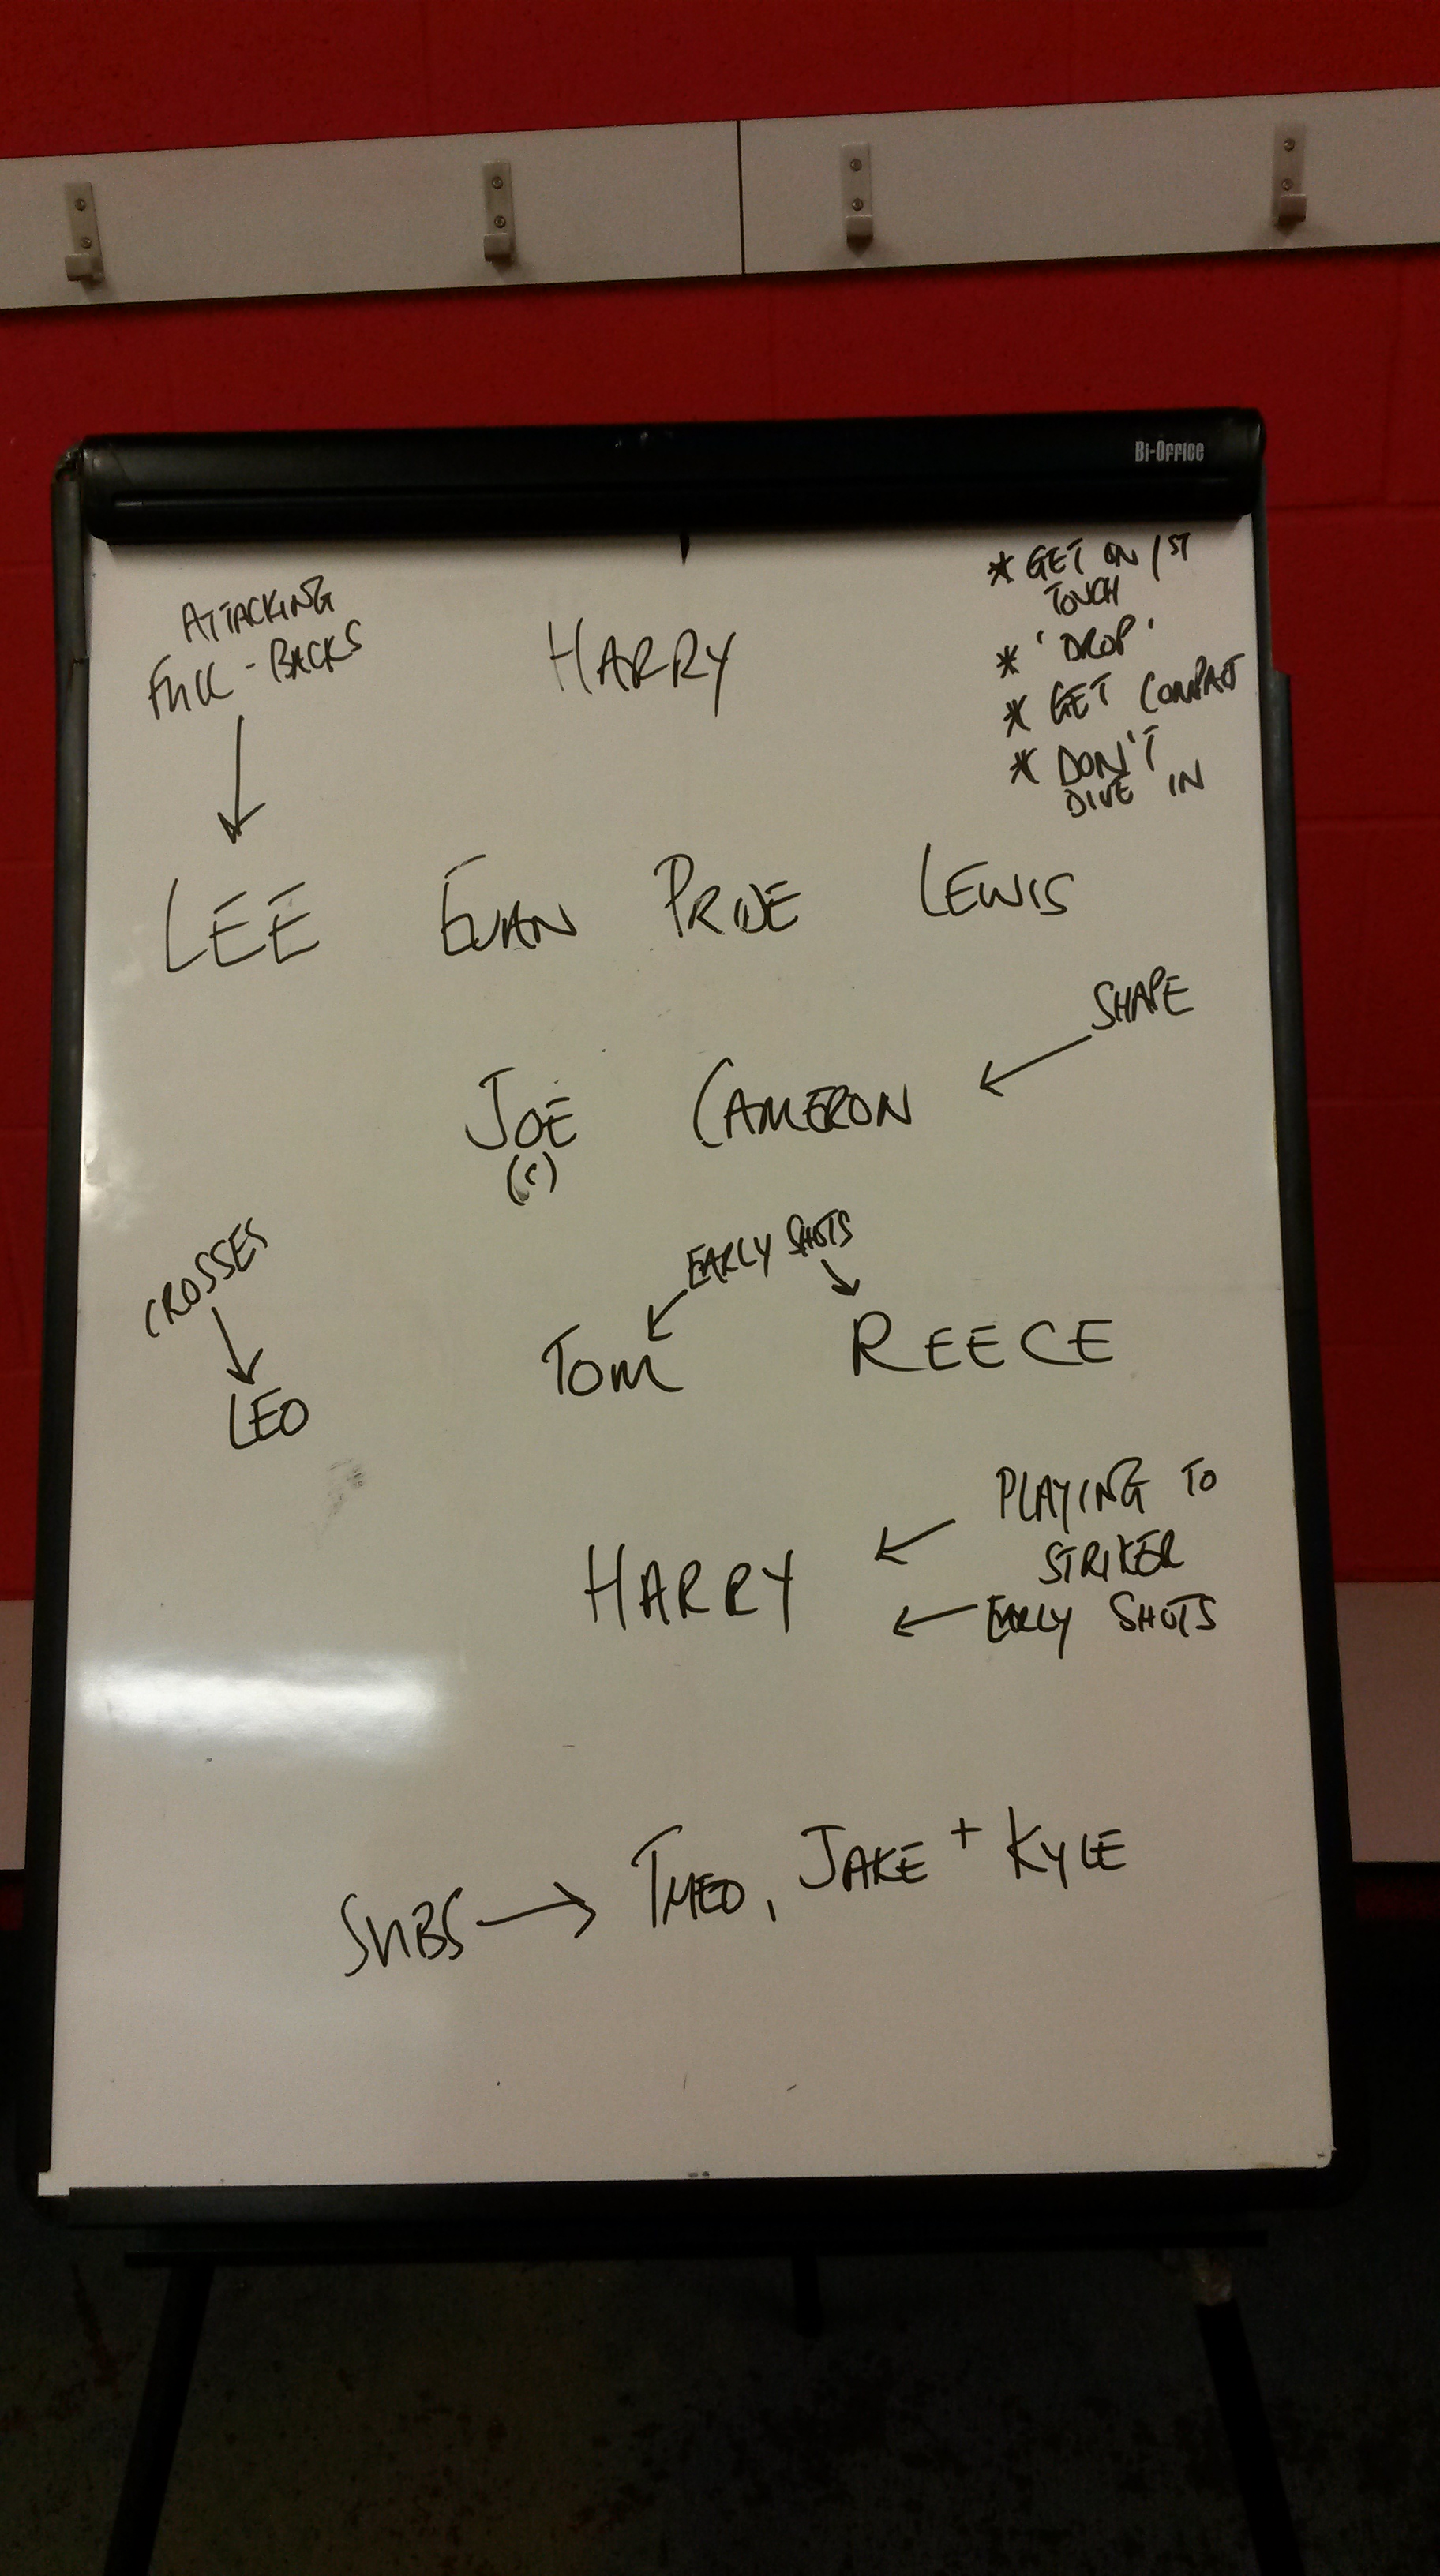 Bi-Office
ATTACKING
FULL-BACKS
HARRY
* GET ON 1ST
TOUCH
* 'DROP'
* GET COMPACT
* DON'T
DIVE IN
LEE EVAN PRIDE LEWIS
SHAPE
JOE CAMERON
(C)
CROSSES
EARLY SHOTS
TOM REECE
LEO
PLAYING TO
STRIKER
HARRY
EARLY SHOTS
SUBS → THEO, JAKE + KYLE